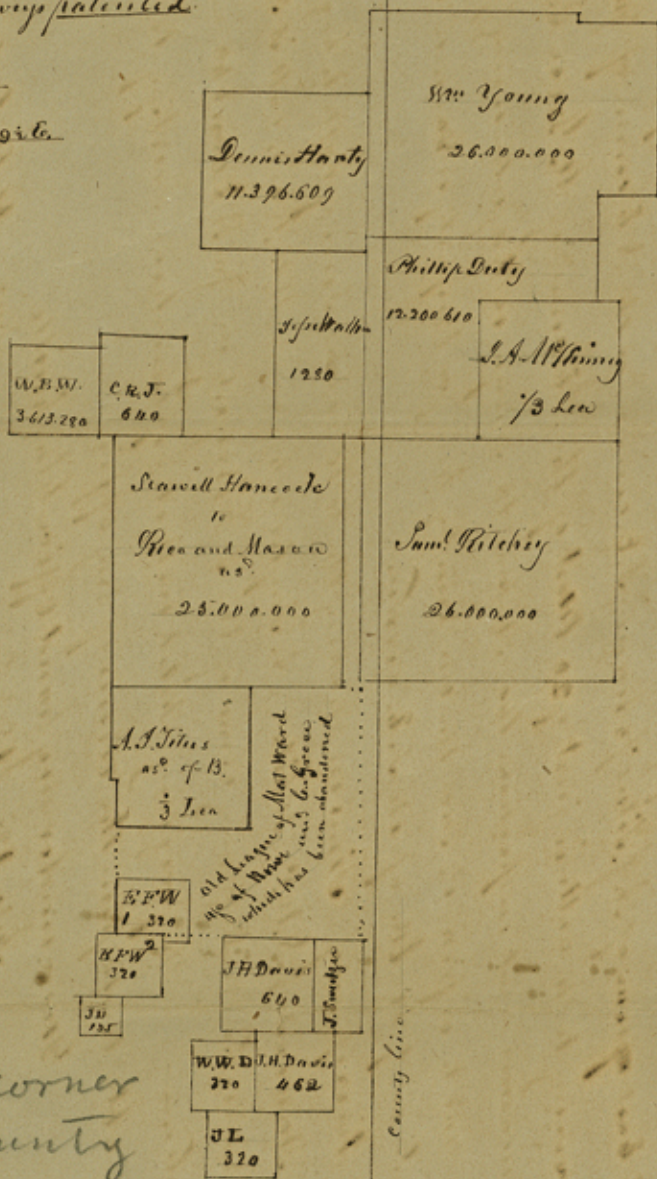 patented
Wm Young
26.000.000
Dennis Hanty
11.396.609
Phillip Duty
12.200 610
1280
J. A. McKinney
1/3 Lea
W.B.W.
3.613.280
C.R.J.
640
Seawill Hancock
to
Rice and Mason
asd.
25.000.000
Saml. Ritchey
26.000.000
A.J. Titus
asd. of B.
1/3 Lea
Old League of Mat Ward
which has been abandoned
EFW
1 320
EFW 2
320
JD
135
J H Davis
640
W.W.D
320
J.H. Davis
462
JL
320
County line
Corner
County